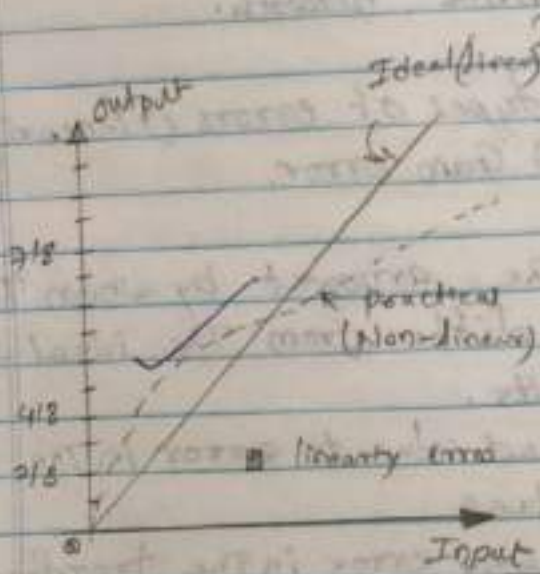 Ideal(linear)
output
7/8
practical
(Non-linear)
4/8
2/8
linearty error
0
Input